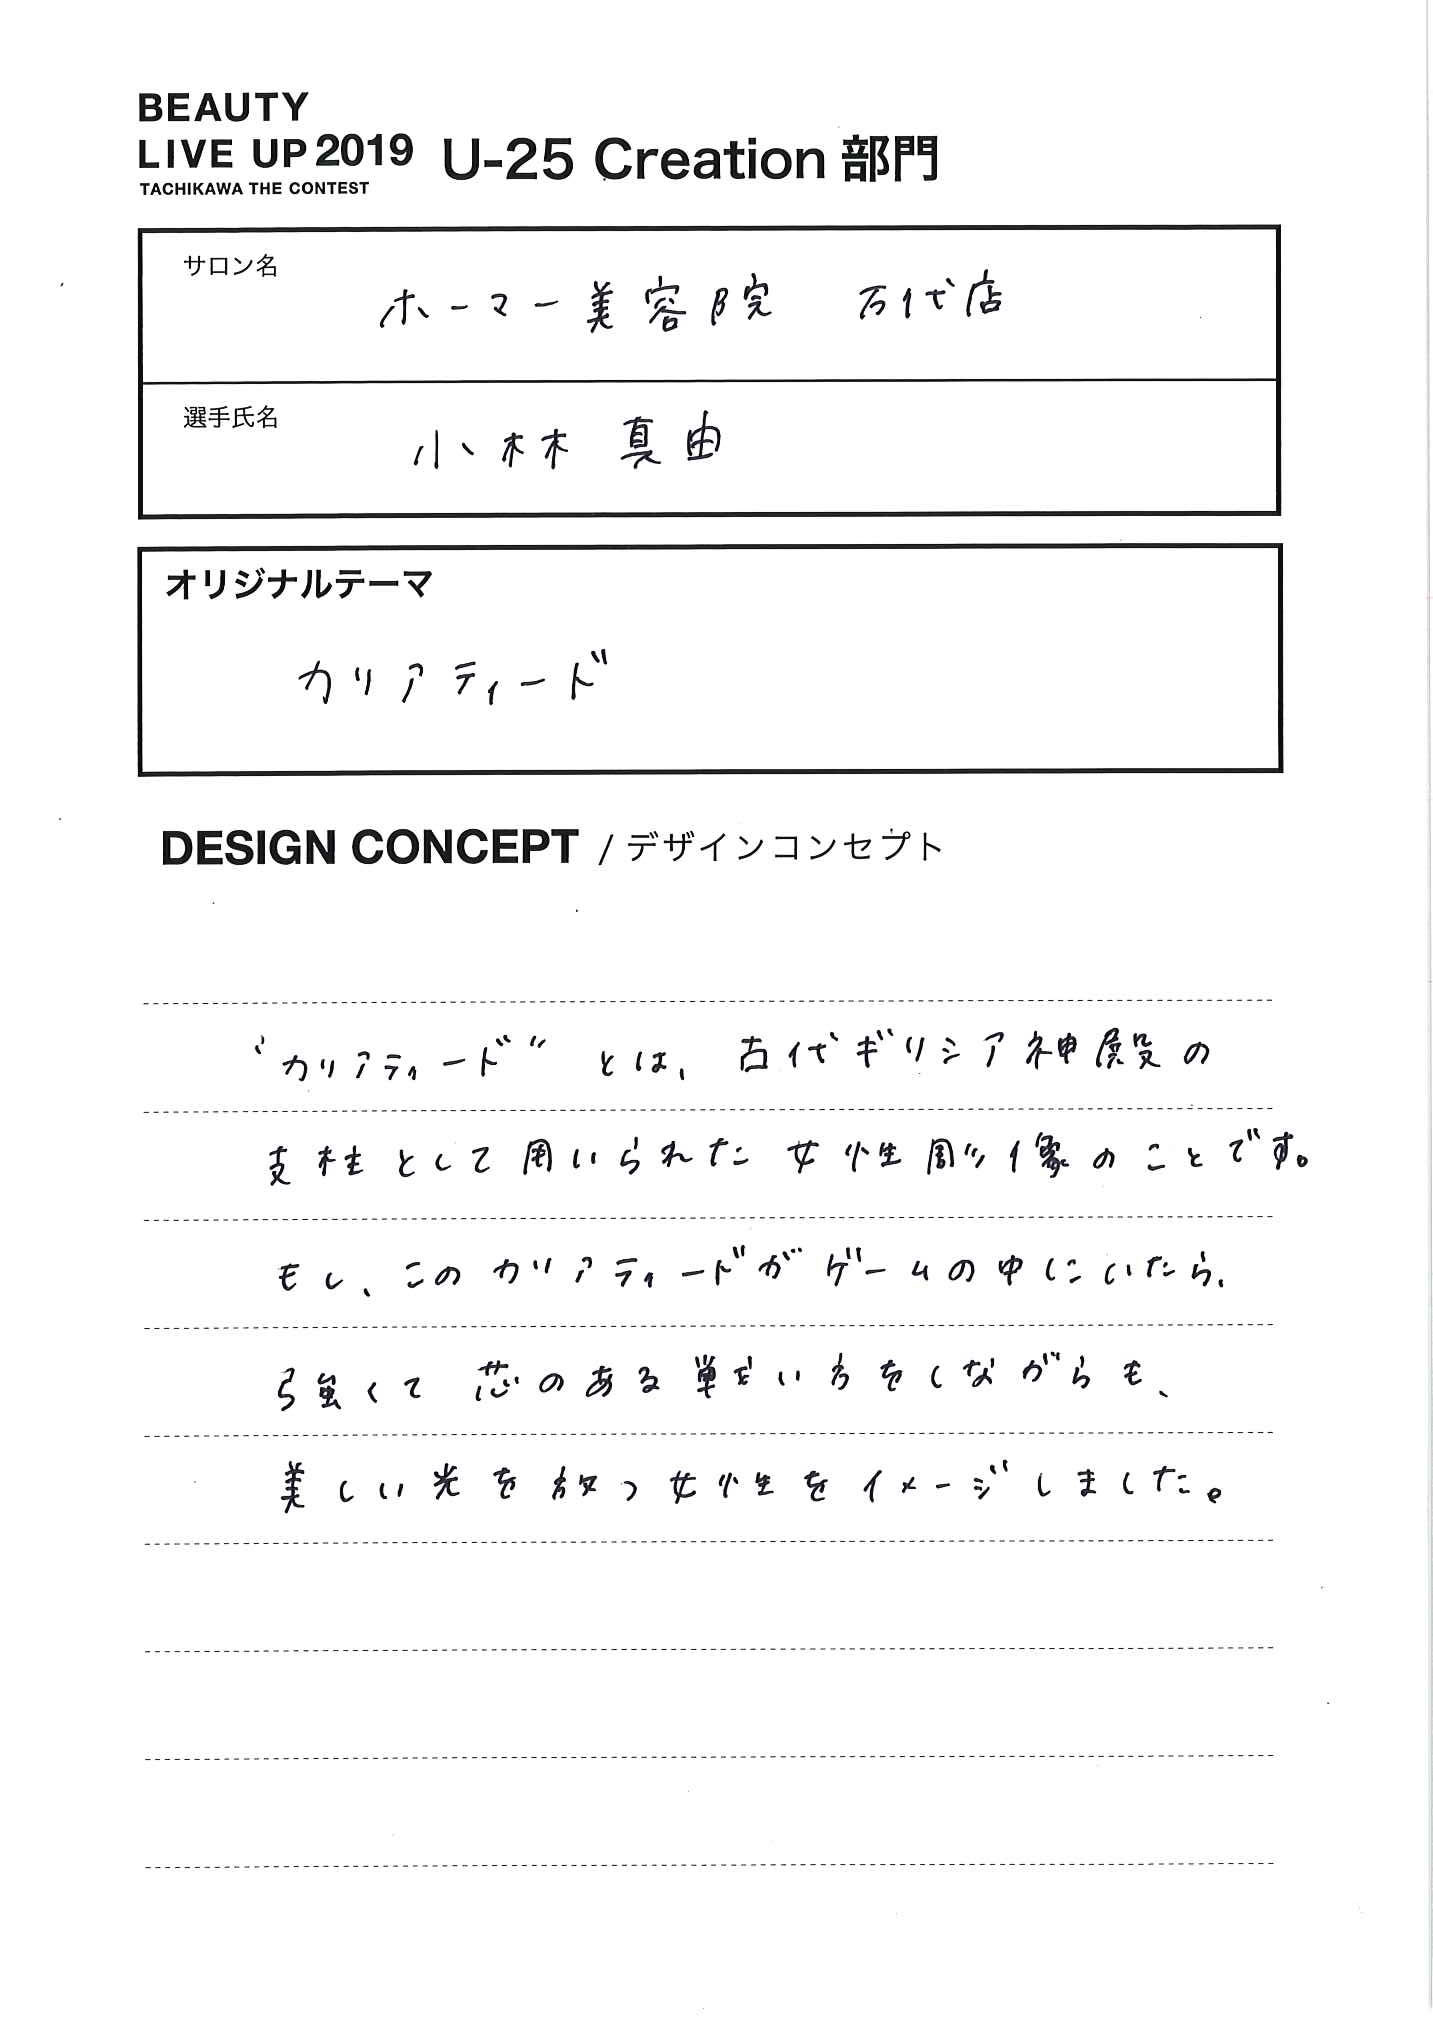 BEAUTY
LIVE UP 2019 U-25 Creation 部門
TACHIKAWA THE CONTEST
サロン名
ホーマー美容院 万代店
選手氏名
小林 真由
オリジナルテーマ
カリアティード
DESIGN CONCEPT / デザインコンセプト
“カリアティード” とは、古代ギリシア神殿の
支柱として用いられた 女性彫像のことです。
もし、このカリアティードがゲームの中にいたら、
強くて 芯のある 単をい方をしながらも、
美しい光を放つ女性をイメージしました。